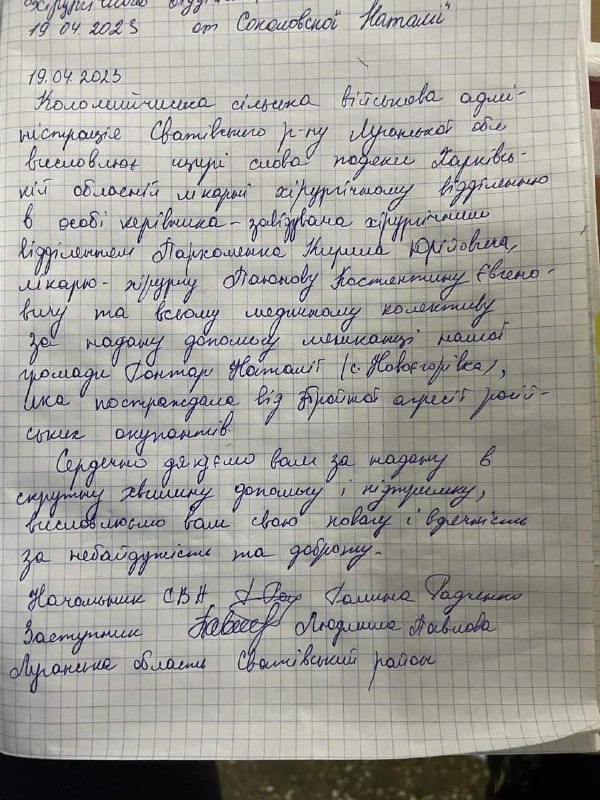 хірургічного відділен
19.04.2023 от Соколовської Наталії"
19.04.2023
Коломийчиська сільська військова адмі-
ністрація Сватівського р-ну Луганської обл
висловлює щирі слова подяки Харківсь-
кій обласній лікарні хірургічному відділенню
в особі керівника – завідувача хірургічним
відділенням Пархоменка Кирила Юрійовича,
лікарю-хірургу Костентину Євгено-
вичу та всьому медичному колективу
за надану допомогу мешканці нашої
громади Гонтар Наталії (с. Новоєгорівка),
яка постраждала від збройної агресії росій-
ських окупантів.
Сердечно дякуємо вам за надану в
скрутну хвилину допомогу і підтримку,
висловлюємо вам свою повагу і вдячність
за небайдужість та доброту.
Начальник СВА Галина Радченко
Заступник Людмила Павлова
Луганська область Сватівський район